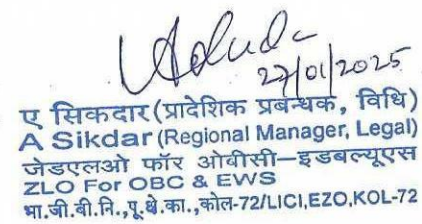 27/01/2025
ए सिकदार (प्रादेशिक प्रबन्धक, विधि)
A Sikdar (Regional Manager, Legal)
जेडएलओ फॉर ओबीसी–इडबल्यूएस
ZLO For OBC & EWS
भा.जी.बी.नि.,पू.क्षे.का.,कोल-72/LICI,EZO,KOL-72